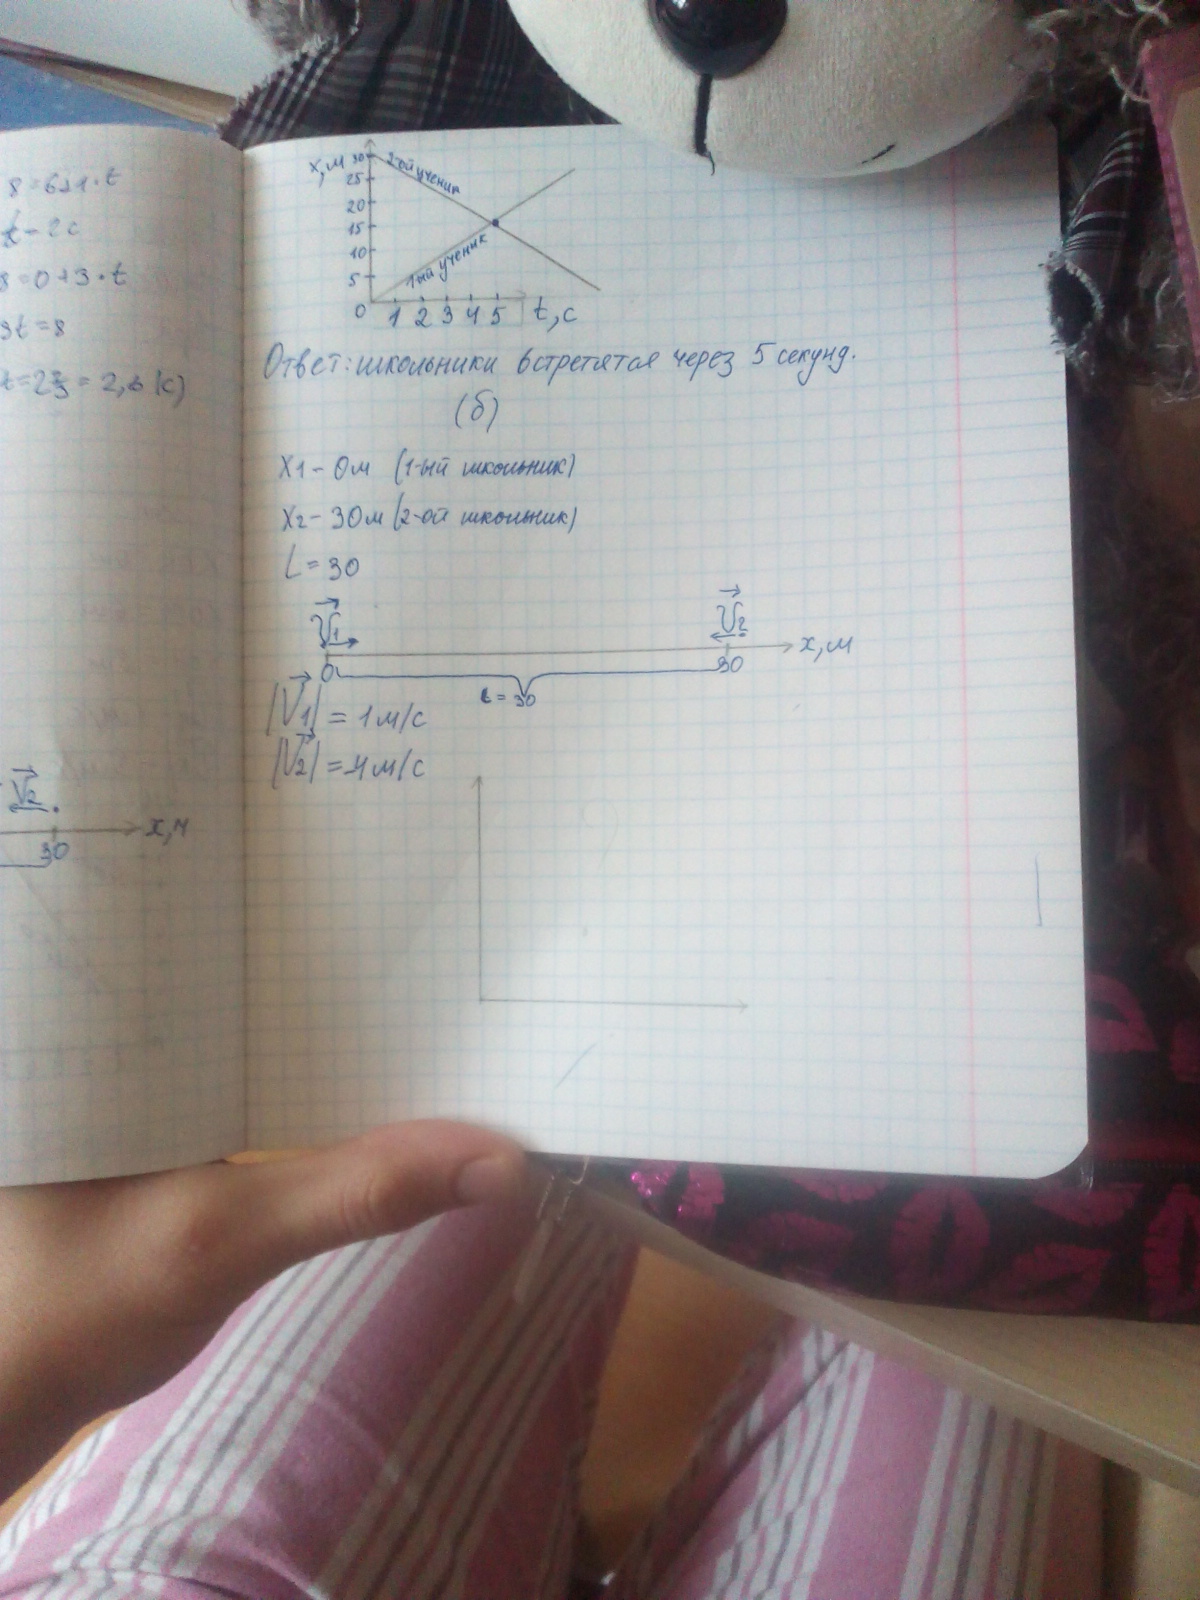 8=6+1·t
t-2c
8=0+3·t
3t=8
t=2⅔=2,6(c)
V2
x,м
30
x,м
30
25
20
15
10
5
0
2-ой ученик
1ый ученик
1 2 3 4 5 t,c
Ответ: школьники встретятся через 5 секунд.
(б)
X1 - 0м (1-ый школьник)
X2 - 30м (2-ой школьник)
L=30
V1 V2
0 30 x,м
L=30
|V1| = 1м/с
|V2| = 4м/с